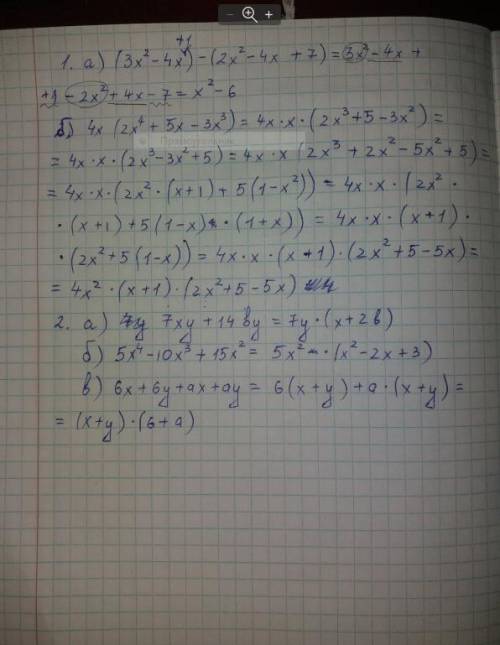 +1
1. а) (3x²-4x)-(2x²-4x+7)=3x²-4x+
+1-2x²+4x-7=x²-6
б) 4x(2x⁴+5x-3x³)=4x·x·(2x³+5-3x²)=
=4x·x·(2x³-3x²+5)=4x·x(2x³+2x²-5x²+5)=
=4x·x·(2x²·(x+1)+5(1-x²))=4x·x·(2x²·
·(x+1)+5(1-x)·(1+x))=4x·x·(x+1)·
·(2x²+5(1-x))=4x·x·(x+1)·(2x²+5-5x)=
=4x²·(x+1)·(2x²+5-5x)
2. а) 7xy+14by=7y·(x+2b)
б) 5x⁴-10x³+15x²=5x²·(x²-2x+3)
в) 6x+6y+ax+ay=6(x+y)+a·(x+y)=
=(x+y)·(6+a)